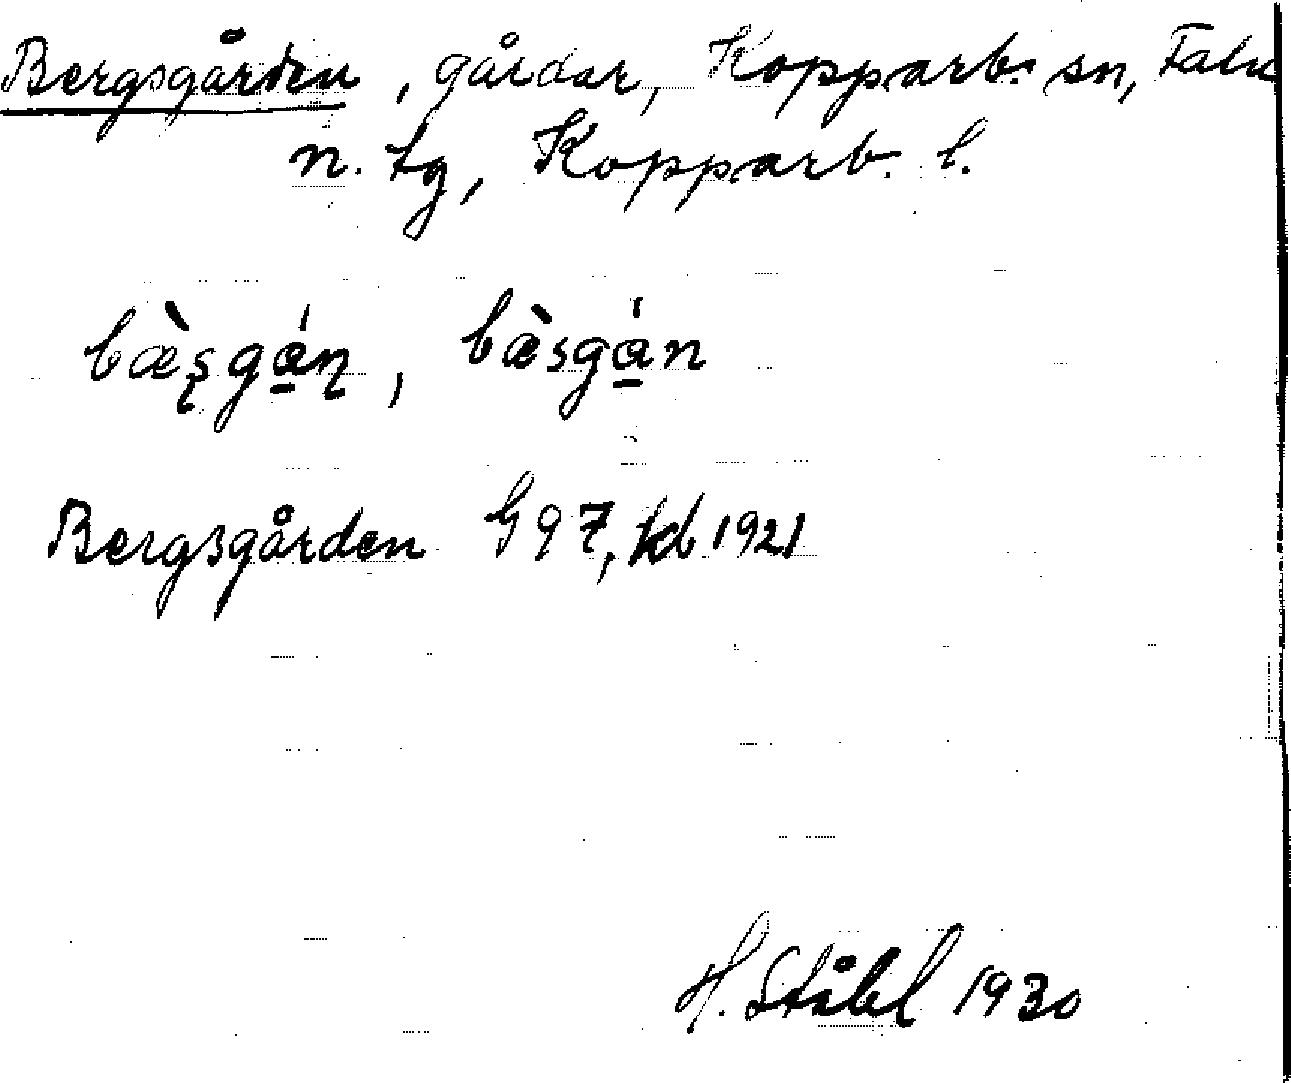 Bergsgården, gårdar, Kopparb. sn, Falu
n. tg, Kopparb. l.
bæ̀ʂgά̲ɳ, bæ̀sgά̲n
Bergsgården G97, kd 1921
H. Ståhl 1930